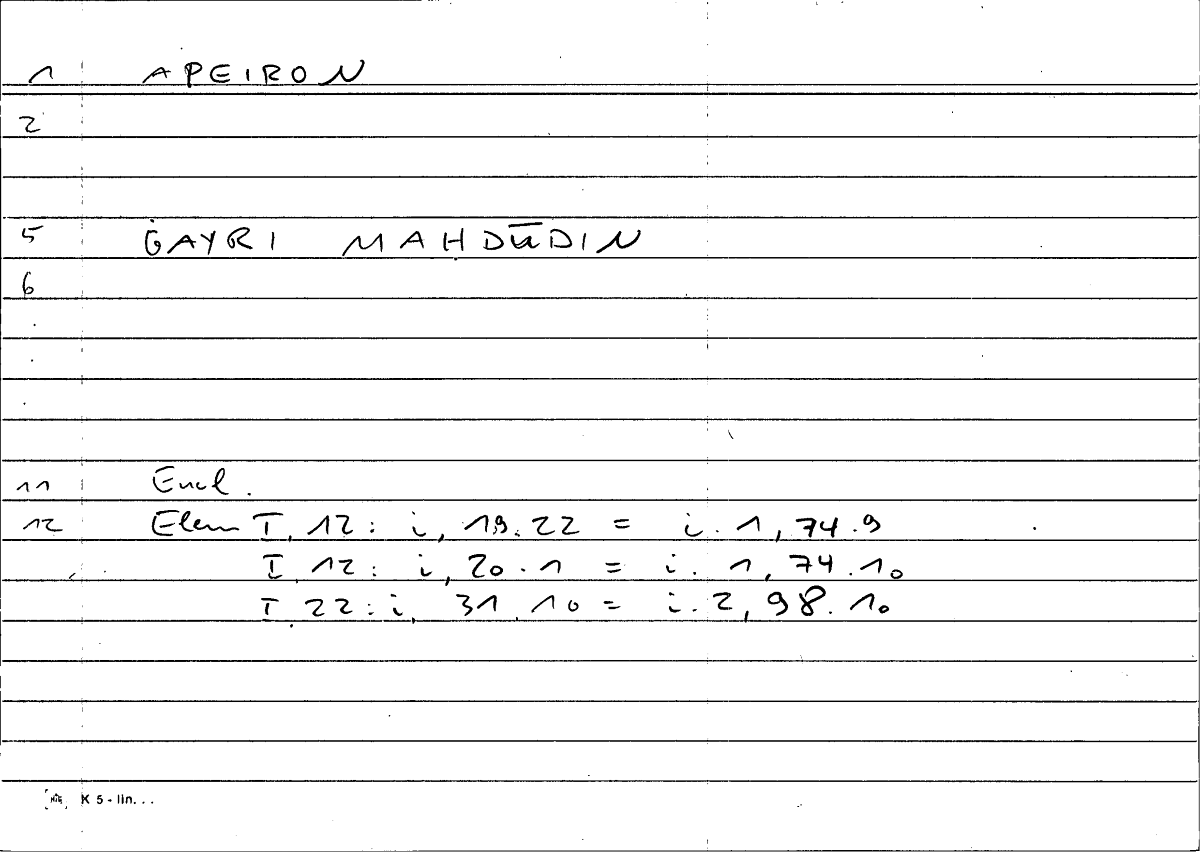 1 APEIRON
2
5 ĠAYRI MAḤDŪDIN
6
.
.
.
11 Eucl.
12 Elem I, 12: i, 19.22 = i.1, 74.9
I, 12: i, 20.1 = i.1, 74.10
I, 22: i, 31.10 = i.2, 98.10
K 5 - lin...